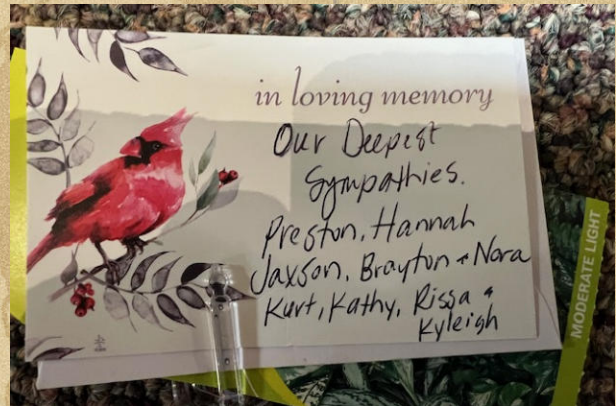 in loving memory
Our Deepest
Sympathies.
Preston, Hannah
Jaxson, Brayton + Nora
Kurt, Kathy, Rissa +
Kyleigh
MODERATE LIGHT